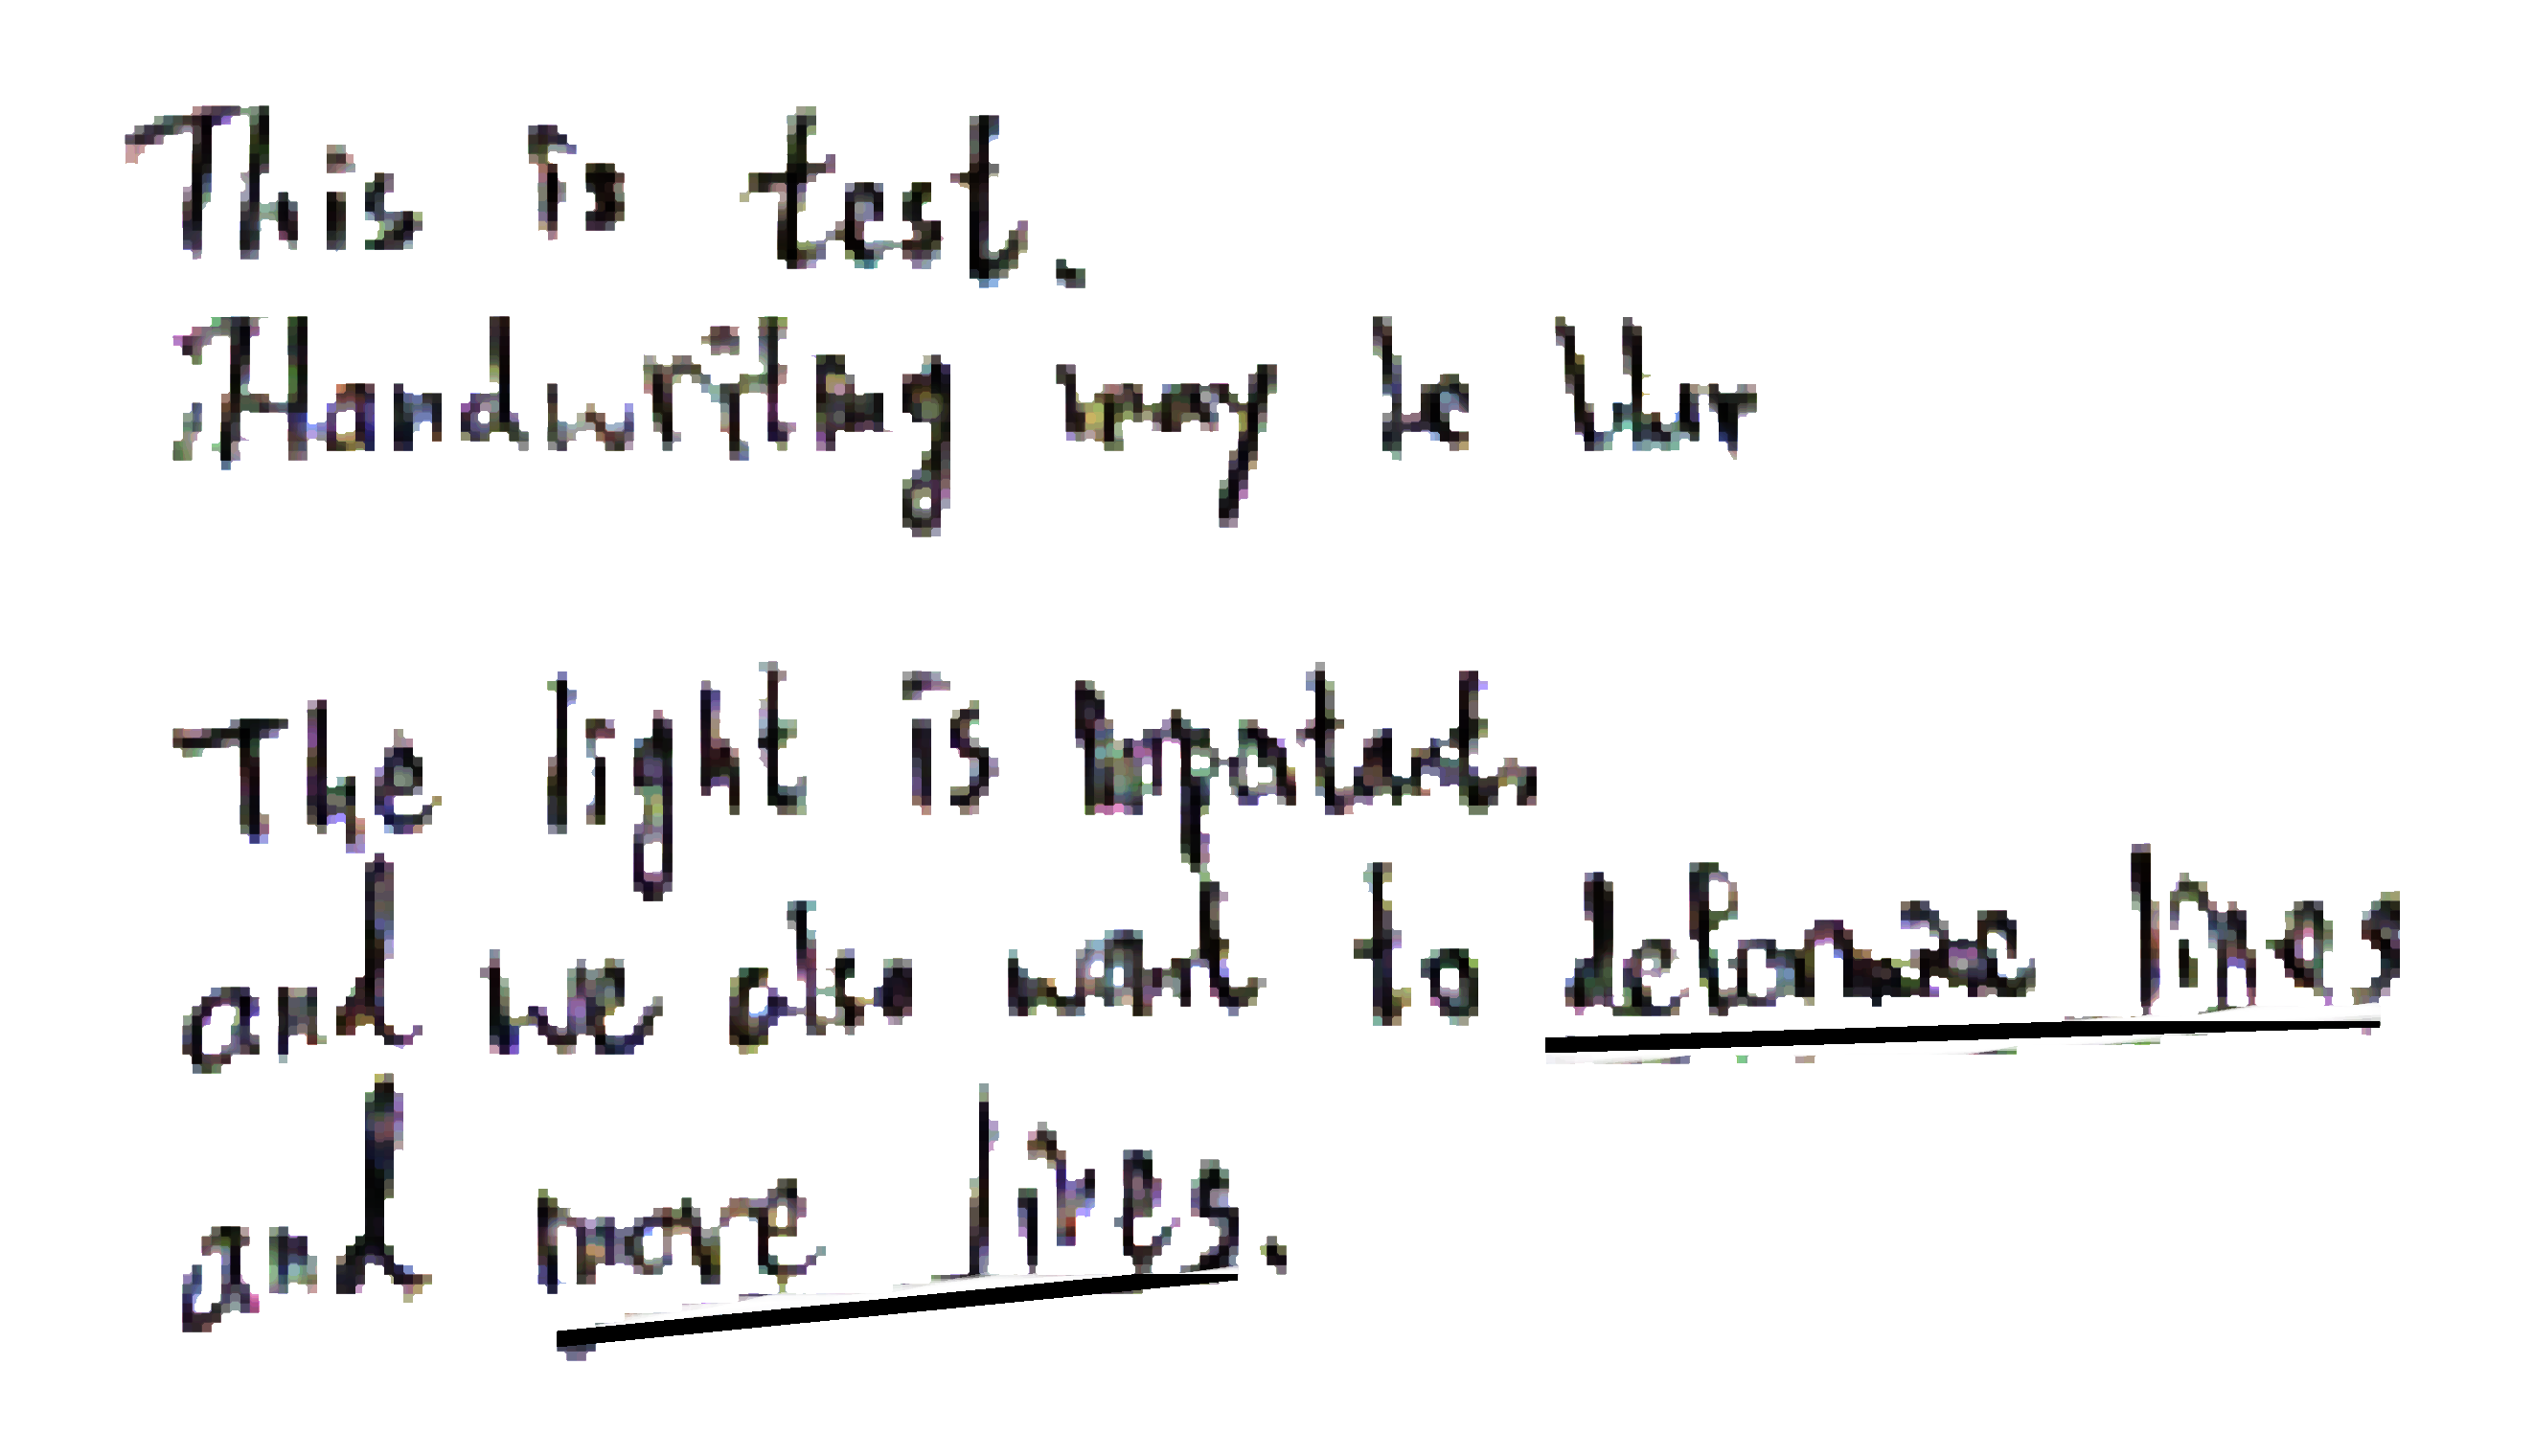 This is test.
Handwriting may be blur
The light is important,
and we also want to deformize lines
and more lines.